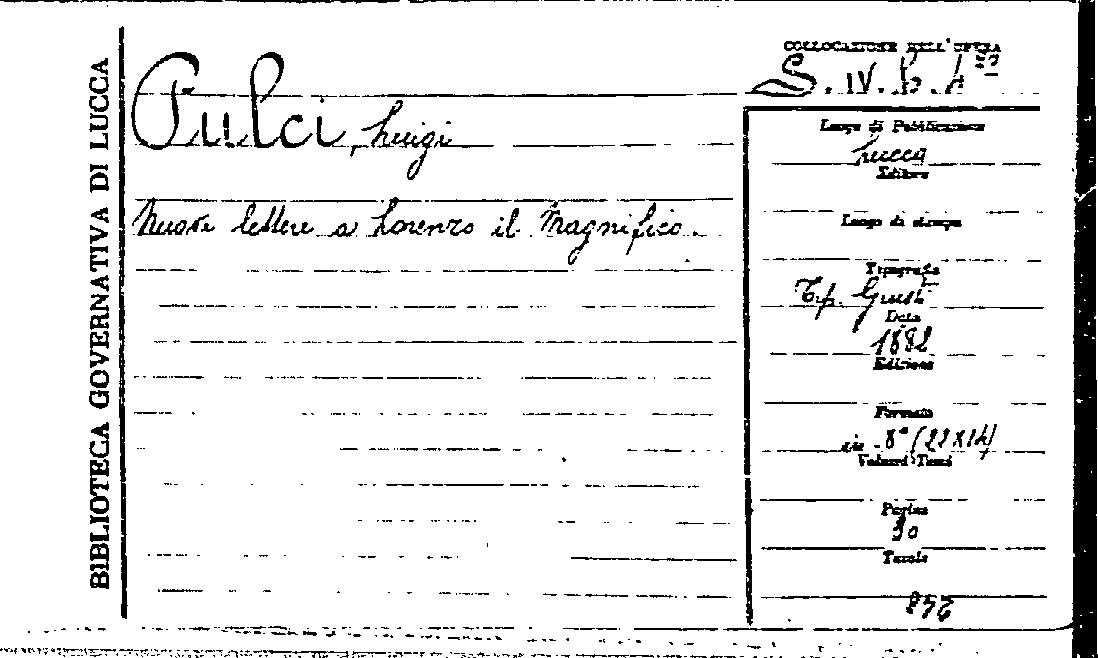 BIBLIOTECA GOVERNATIVA DI LUCCA
Pulci, Luigi
Nuove lettere a Lorenzo il Magnifico.
COLLOCAZIONE DELL'OPERA
S. IV. b.
Luogo di Pubblicazione
Lucca
Editore
Luogo di stampa
Tipografia
Tip. Giusti
Data
1882
Edizione
Formato
in 8° (22x14)
Volumi-Tomi
Pagine
30
Tavole